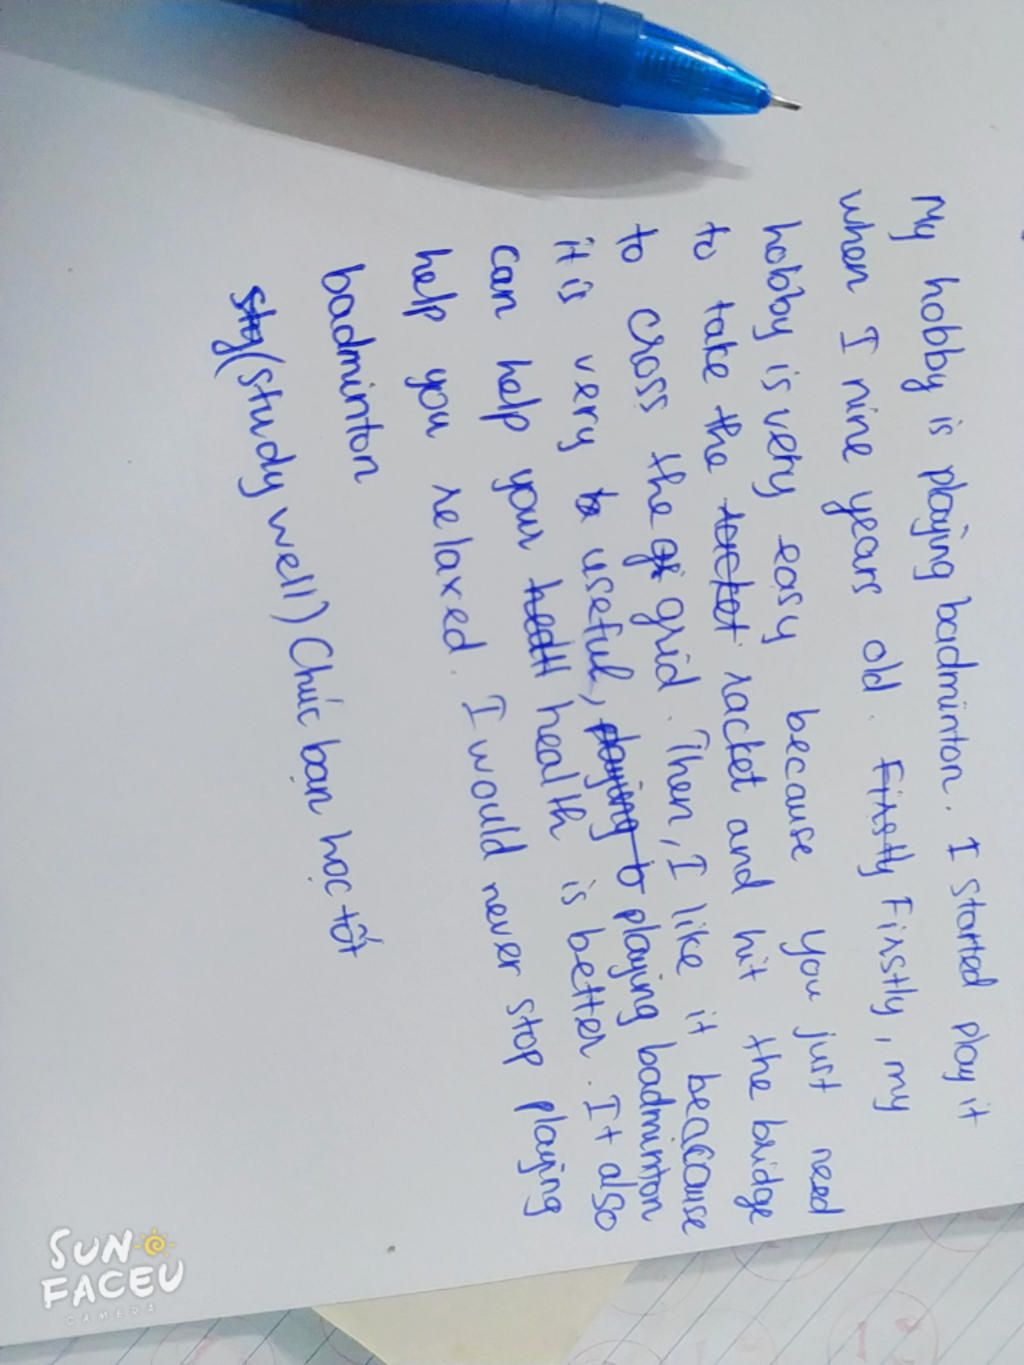 My hobby is playing badminton. I started play it
when I nine years old. Firstly Firstly, my
hobby is very easy because you just need
to take the racket racket and hit the bridge
to cross the gr grid. Then, I like it beacause
it is very useful, playing b playing badminton
can help your health is better. It also
help you relaxed. I would never stop playing
badminton
(study well) Chúc bạn học tốt
SUN
FACEU
CAMERA